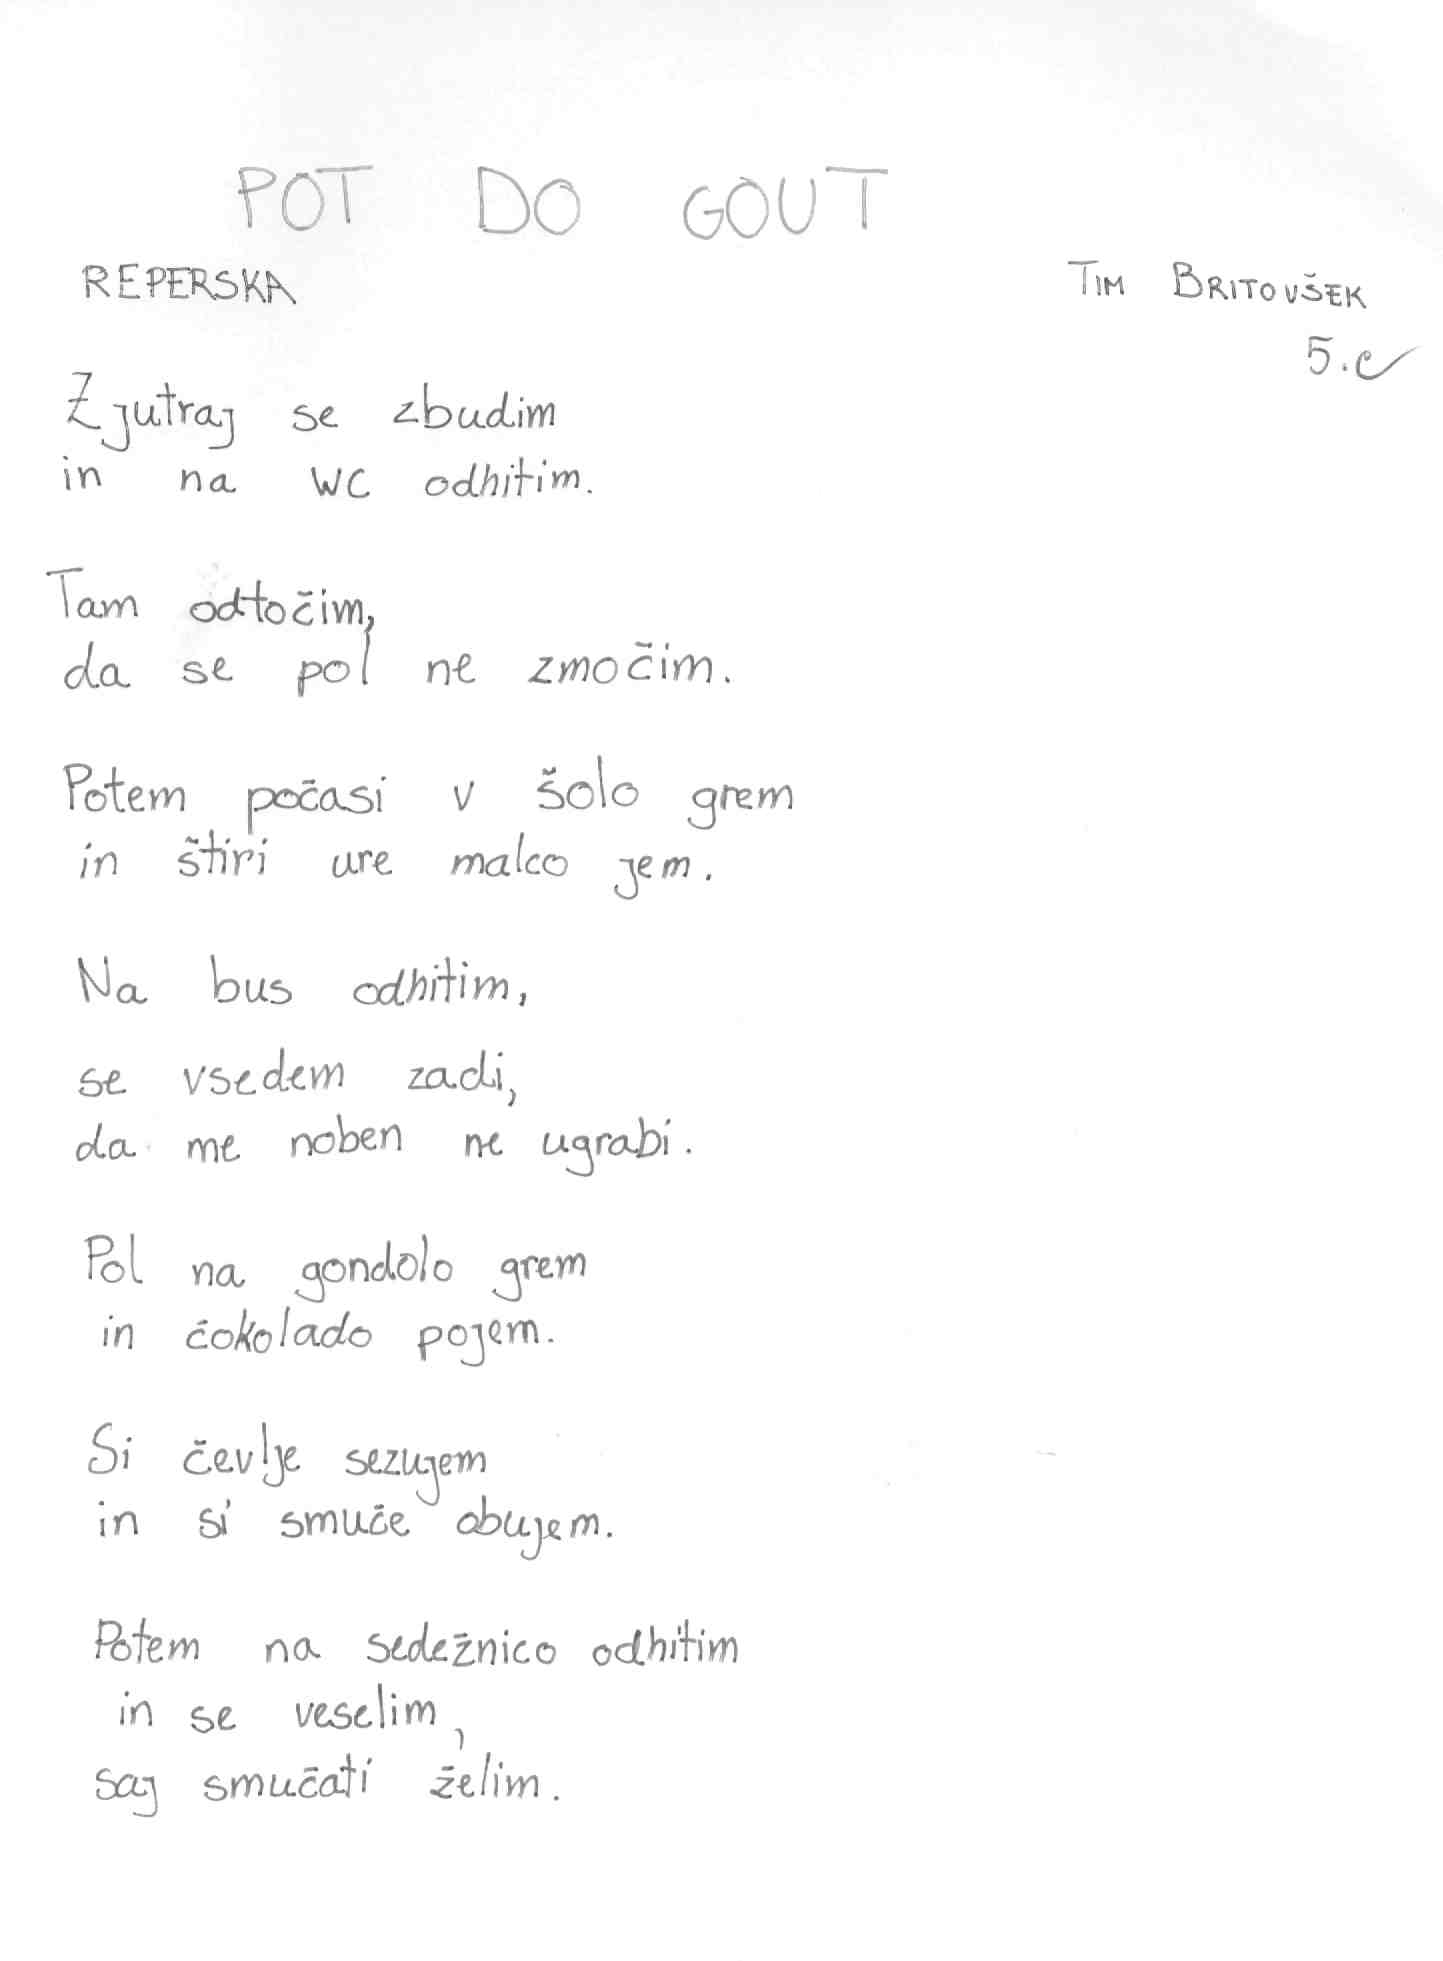 POT DO GOUT
REPERSKA
TIM BRITOVŠEK
5.c
Zjutraj se zbudim
in na WC odhitim.
Tam odtočim,
da se pol ne zmočim.
Potem počasi v šolo grem
in štiri ure malco jem.
Na bus odhitim,
se vsedem zadi,
da me noben ne ugrabi.
Pol na gondolo grem
in čokolado pojem.
Si čevlje sezujem
in si smuče obujem.
Potem na sedežnico odhitim
in se veselim,
saj smučati želim.